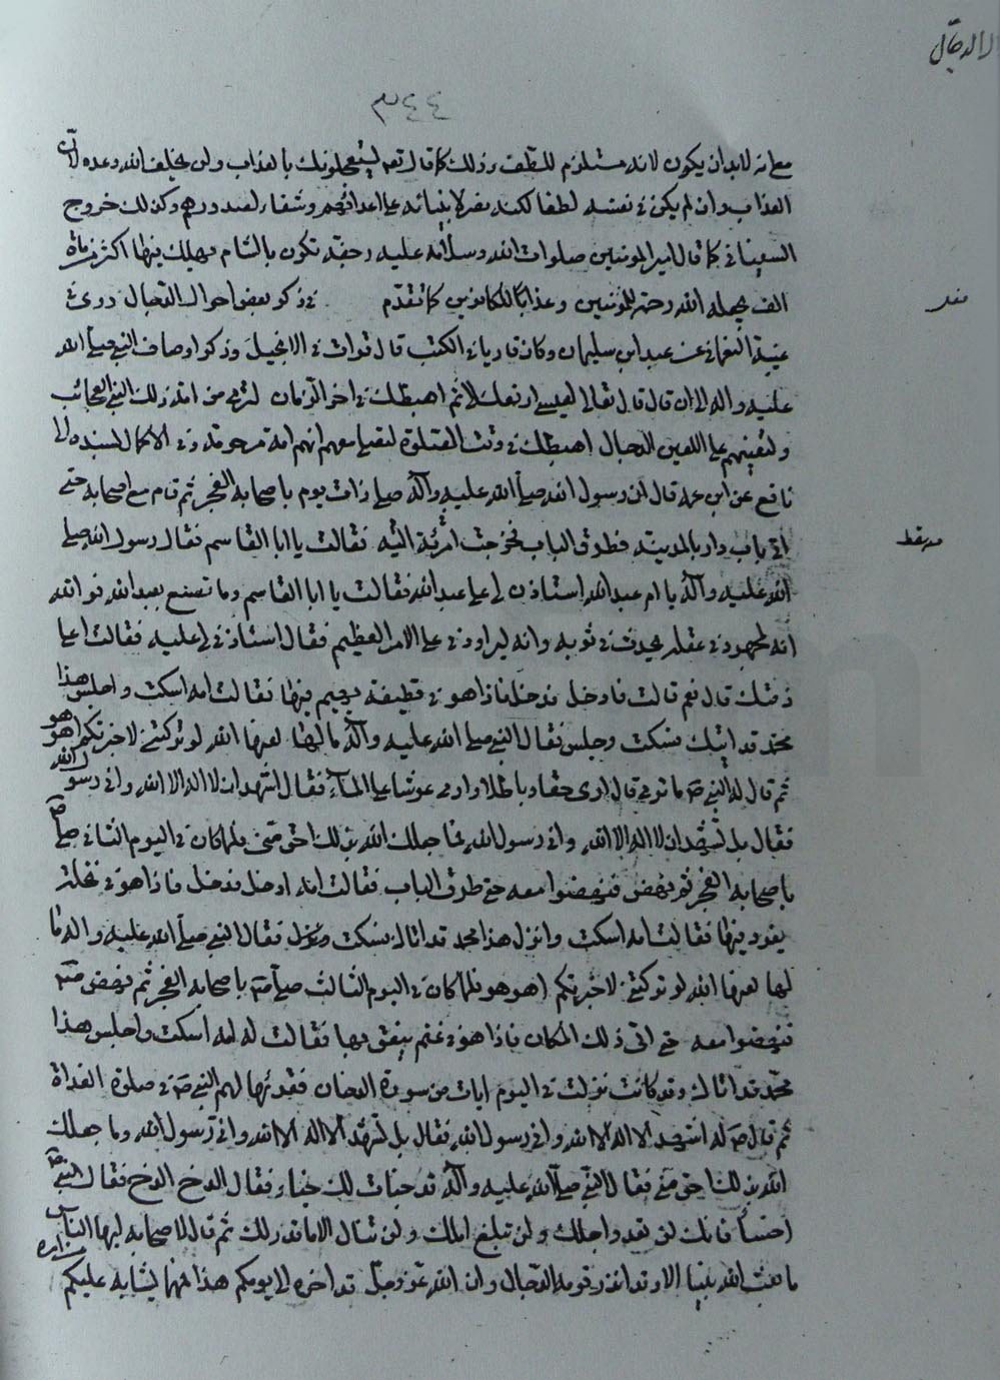 الدجال
٣٤٤
مع انه لابد ان يكون لانه مستلزم للطف وذلك كما قال تعم ليستعجلونك بالعذاب ولن يخلف الله وعده لان
العذاب وان لم يكن في نفسه لطفا لكنه نصر لانبيائه على اعدائهم وشفاء لصدورهم وكذلك خروج
السفياني كما قال امير المؤمنين صلوات الله وسلامه عليه رجفة تكون بالشام يهلك فيها اكثر من مائة
الف يجعله الله رحمة للمؤمنين وعذابا للكافرين كما تقدم في ذكر بعض احوال الدجال روى في
غيبة النعماني عن عبد الله بن سليمان وكان قاريا في الكتب قال قرات في الانجيل وذكر اوصاف النبي صلى الله
عليه واله الى ان قال قال تعالى لعيسى ارفعك الي ثم اهبطك في اخر الزمان لترى من امة ذلك النبي العجائب
ولتعينهم على اللعين الدجال اهبطك في وقت الصلوة لتصلى معهم انهم امة مرحومة وفي الاكمال بسنده الى
نافع عن ابن عمر قال ان رسول الله صلى الله عليه وآله صلى ذات يوم باصحابه الفجر ثم قام مع اصحابه حتى
اتى باب دار بالمدينة فطرق الباب فخرجت امرئة اليه فقالت يا ابا القاسم فقال رسول الله صلى
الله عليه وآله يا ام عبد الله استاذن لى على عبد الله فقالت يا ابا القاسم وما تصنع بعبد الله فوالله
انه لمجهود في عقله يحدث في ثوبه وانه ليراودني على الامر العظيم فقال استاذني لى عليه فقالت اعلى
ذمتك قال نعم قالت فادخل فدخل فاذا هو في قطيفة يهينم فيها فقالت امه اسكت واجلس هذا
محمد قد اتيك فسكت وجلس فقال النبي صلى الله عليه وآله ما لها لعنها الله لو تركتني لاخبرتكم اهو هو
ثم قال له النبي ص ما ترى قال ارى حقا وباطلا وارى عرشا على الماء فقال اشهد ان لا اله الا الله واني رسول الله
فقال بل تشهد ان لا اله الا الله واني رسول الله فما جعلك الله بذلك احق مني فلما كان في اليوم الثاني صلى ص
باصحابه الفجر ثم نهض فنهضوا معه حتى طرق الباب فقالت امه ادخل فدخل فاذا هو في نخلة
يغرد فيها فقالت امه اسكت وانزل هذا محمد قد اتاك فسكت ونزل فقال النبي صلى الله عليه واله ما
لها لعنها الله لو تركتني لاخبرتكم اهو هو فلما كان في اليوم الثالث صلى ص باصحابه الفجر ثم نهض ص
فنهضوا معه حتى اتى ذلك المكان فاذا هو في غنم ينعق بها فقالت له امه اسكت واجلس هذا
محمد قد اتاك وقد كانت نزلت في اليوم ايات من سورة الدخان فقرئها لهم النبي ص في صلوة الغداة
ثم قال ص له اشهد ان لا اله الا الله واني رسول الله فقال بل تشهد ان لا اله الا الله واني رسول الله وما جعلك
الله بذلك احق مني فقال النبي صلى الله عليه وآله قد خبات لك خباء فقال الدخ الدخ فقال النبي ص
اخسأ فانك لن تعدو اجلك ولن تبلغ املك ولن تنال الا ما قدر لك ثم قال لاصحابه ايها الناس
ما بعث الله نبيا الا وقد انذر قومه الدجال وان الله عز وجل قد اخره الى يومكم هذا فمهما تشابه عليكم